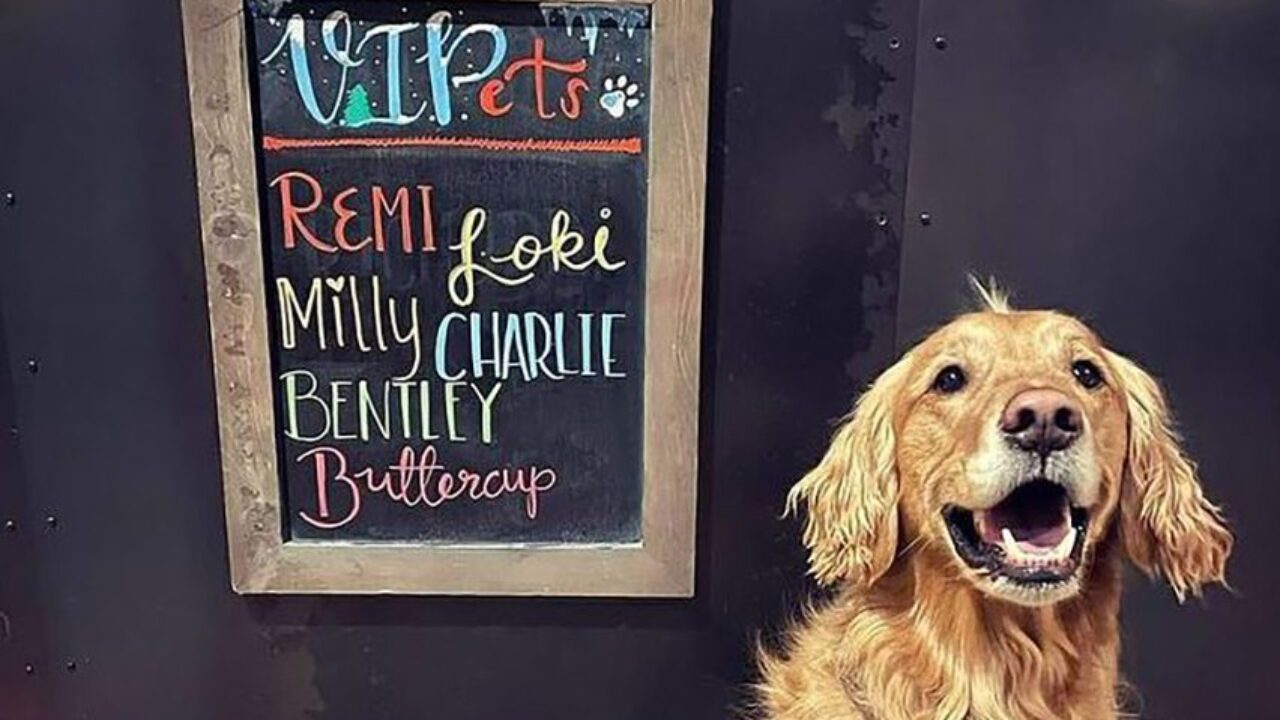 VIPets
REMI
Loki
Milly
CHARLIE
BENTLEY
Buttercup